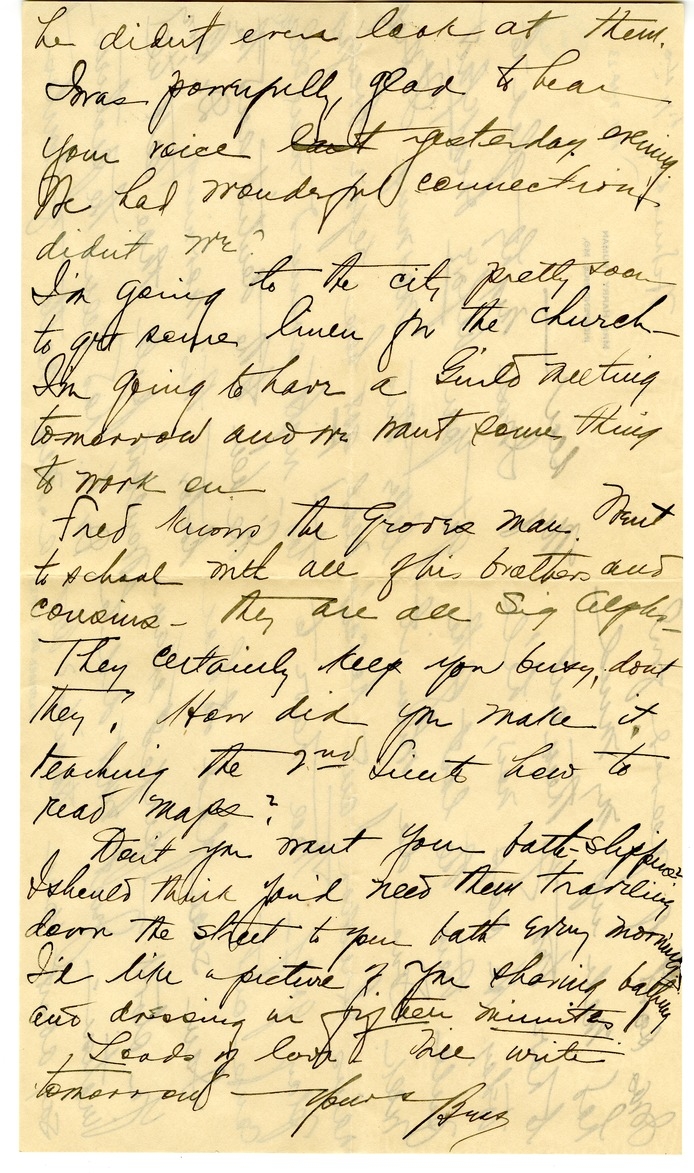 he didn't even look at them.
I was powerfully glad to hear
your voice last yesterday evening.
We had wonderful connection,
didn't we?
I'm going to the city pretty soon
to get some linen for the church –
I'm going to have a Guild meeting
tomorrow and we want some thing
to work on
Fred knows the Groves man. Went
to school with all of his brothers and
cousins – they are all Sig Alphs –
They certainly keep you busy, dont
they? How did you make it,
teaching the 2nd Lieuts how to
read maps?
Don't you want your bath-slippers?
I should think you'd need them traveling
down the street to your bath every morning
I'd like a picture of you shaving bathing
and dressing in fifteen minutes
Loads of love. Will write
tomorrow – Yours